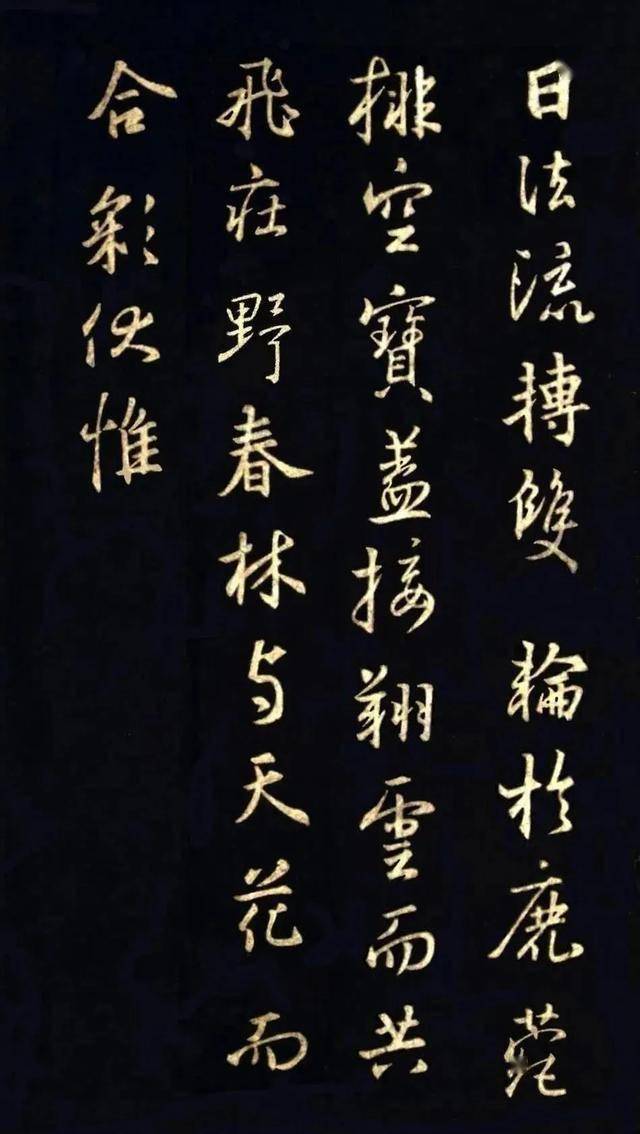 日法流轉雙輪於鹿苑
排空寶盖接翔雲而共
飛庄野春林与天花而
合彩伏惟